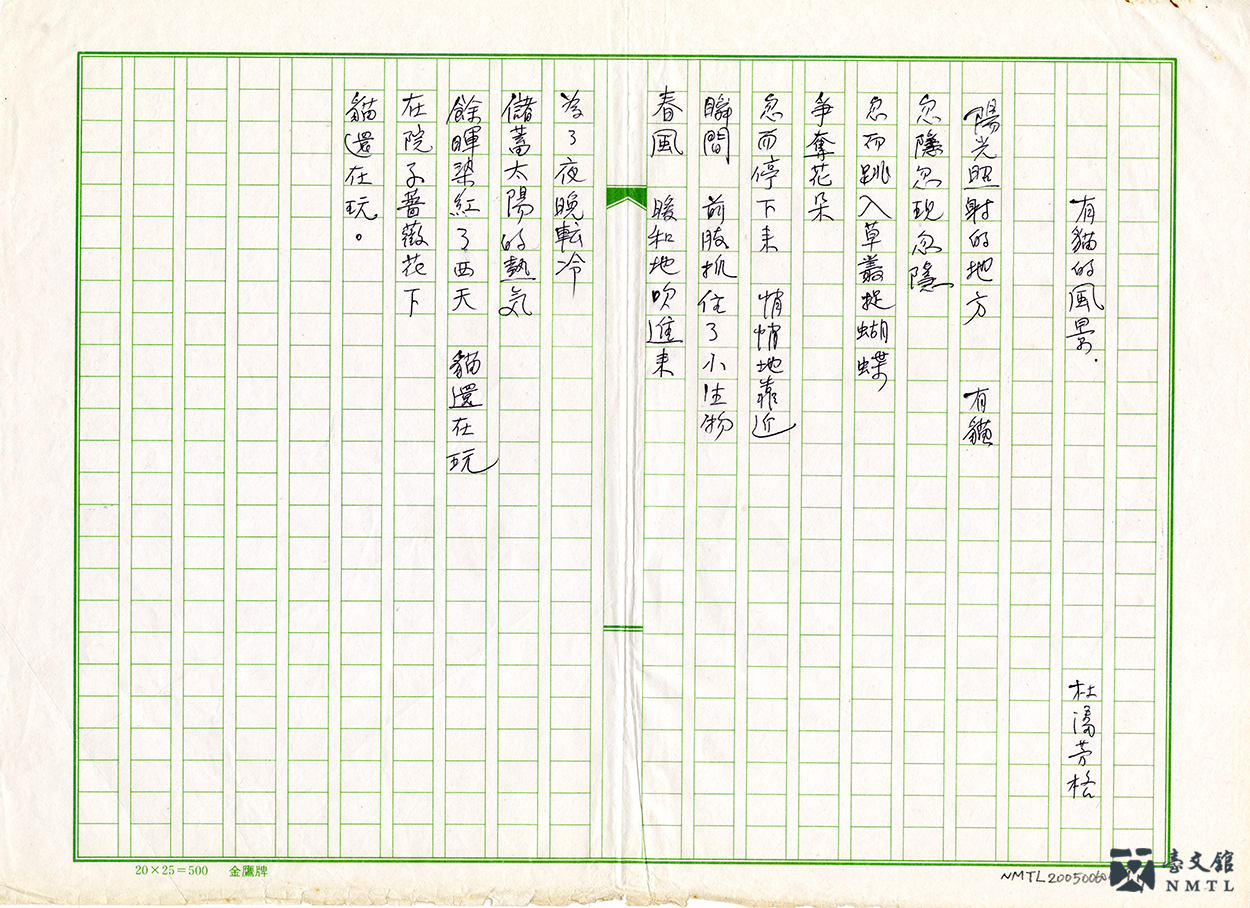 有貓的風景.
杜潘芳格
陽光照射的地方　有貓
忽隱忽現忽隱
忽而跳入草叢捉蝴蝶
爭奪花朵
忽而停下来　悄悄地靠近
瞬間　前肢抓住了小生物
春風　暖和地吹進来
為了夜晚転冷
儲蓄太陽的熱気
餘暉染紅了西天　貓還在玩
在院子薔薇花下
貓還在玩。
20×25=500　金鷹牌
NMTL200500
臺文館
NMTL